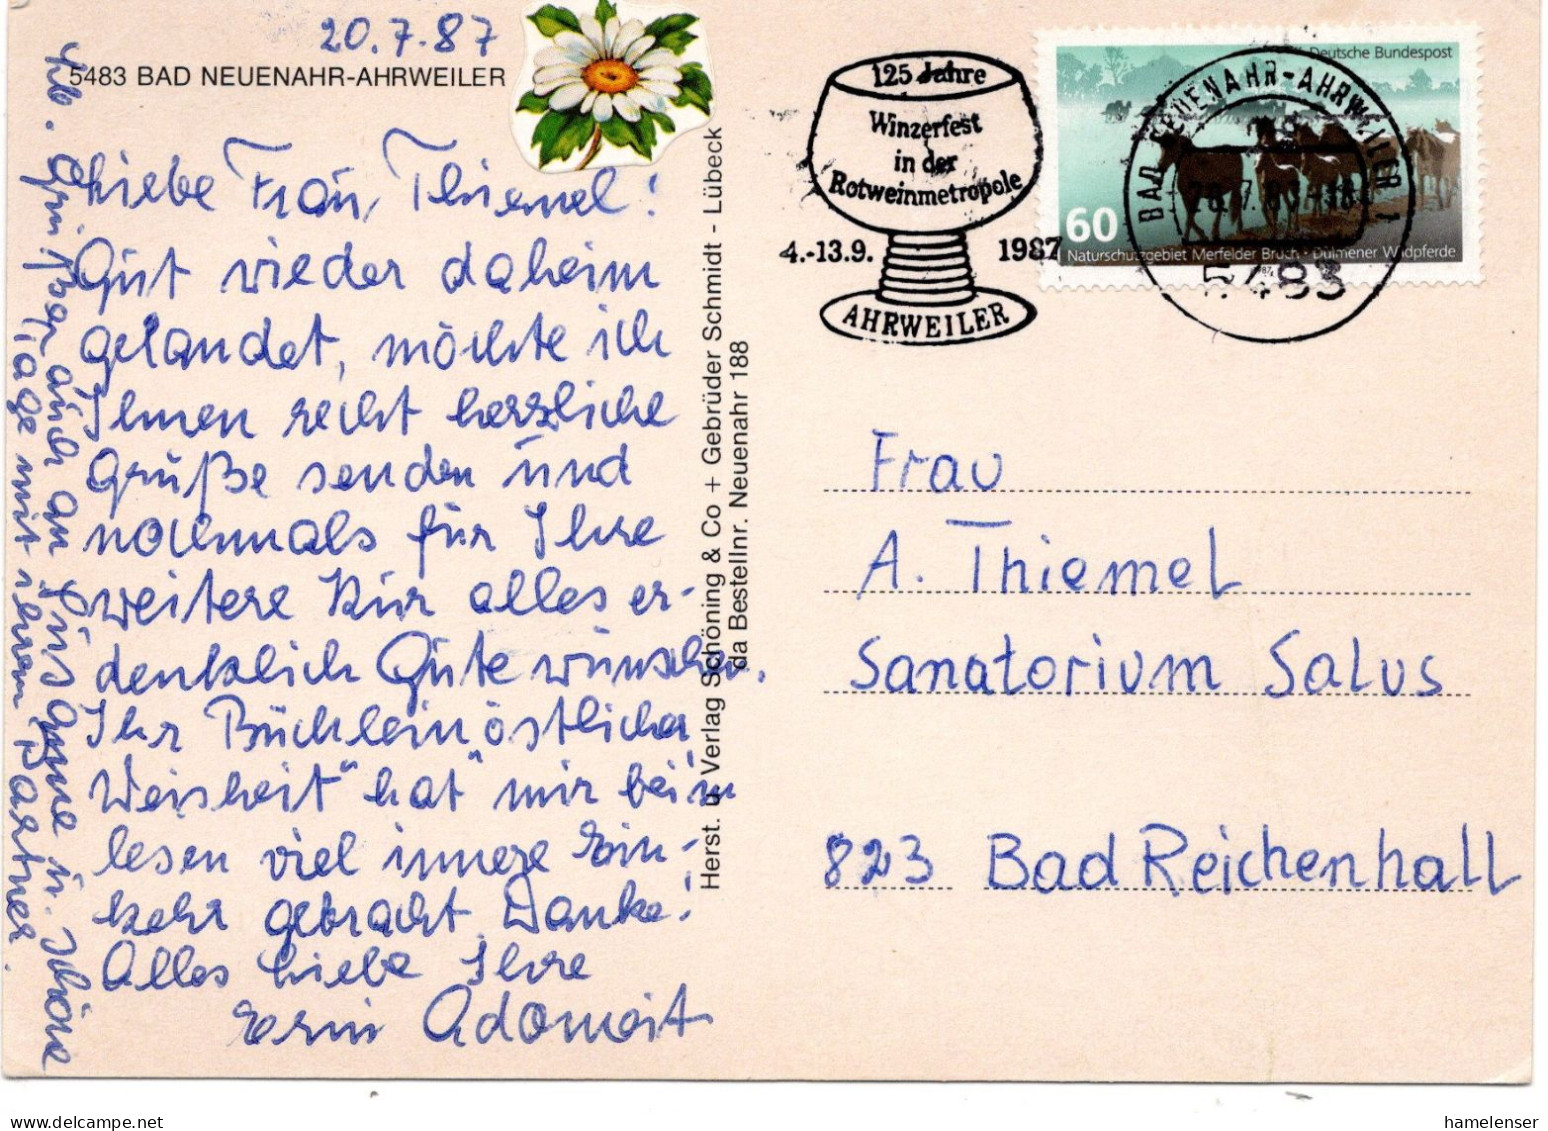 20.7.87
5483 BAD NEUENAHR-AHRWEILER
Liebe Frau Thiemel!
Gut wieder daheim
gelandet, möchte ich
Ihnen recht herzliche
Grüße senden und
nochmals für Ihre
weitere Kur alles er-
denklich Gute wünschen.
Ihr Büchlein „östlicher
Weisheit" hat mir beim
lesen viel innere Ein-
kehr gebracht. Danke!
Alles Liebe Ihre
Adomeit
Lb. Grüße auch an
u. schöne
Tage mit ihrem Partner.
Herst. u. Verlag Schöning & Co + Gebrüder Schmidt - Lübeck
da Bestellnr. Neuenahr 188
125 Jahre
Winzerfest
in der
Rotweinmetropole
4.-13.9. 1987
AHRWEILER
Deutsche Bundespost
60
Naturschutzgebiet Merfelder Bruch · Dülmener Wildpferde
BAD NEUENAHR-AHRWEILER 1
5483
Frau
A. Thiemel
Sanatorium Salus
823 Bad Reichenhall
hamelenser